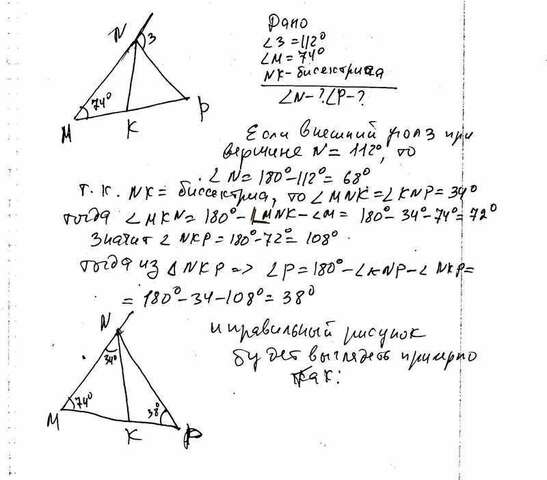 N 3
74°
M K P
Дано
∠3=112°
∠M=74°
NK-бисектриса
∠N-? ∠P-?
Если внешний угол 3 при
вершине N=112°, то
∠N=180°-112°=68°
т.к. NK=биссектриса, то ∠MNK=∠KNP=34°
тогда ∠MKN=180°-∠MNK-∠M=180°-34°-74°=72°
Значит ∠NKP=180°-72°=108°
тогда из △NKP=>∠P=180°-∠KNP-∠NKP=
=180°-34-108°=38°
и правильный рисунок
будет выглядеть примерно
так:
N
34°
74° 38°
M K P